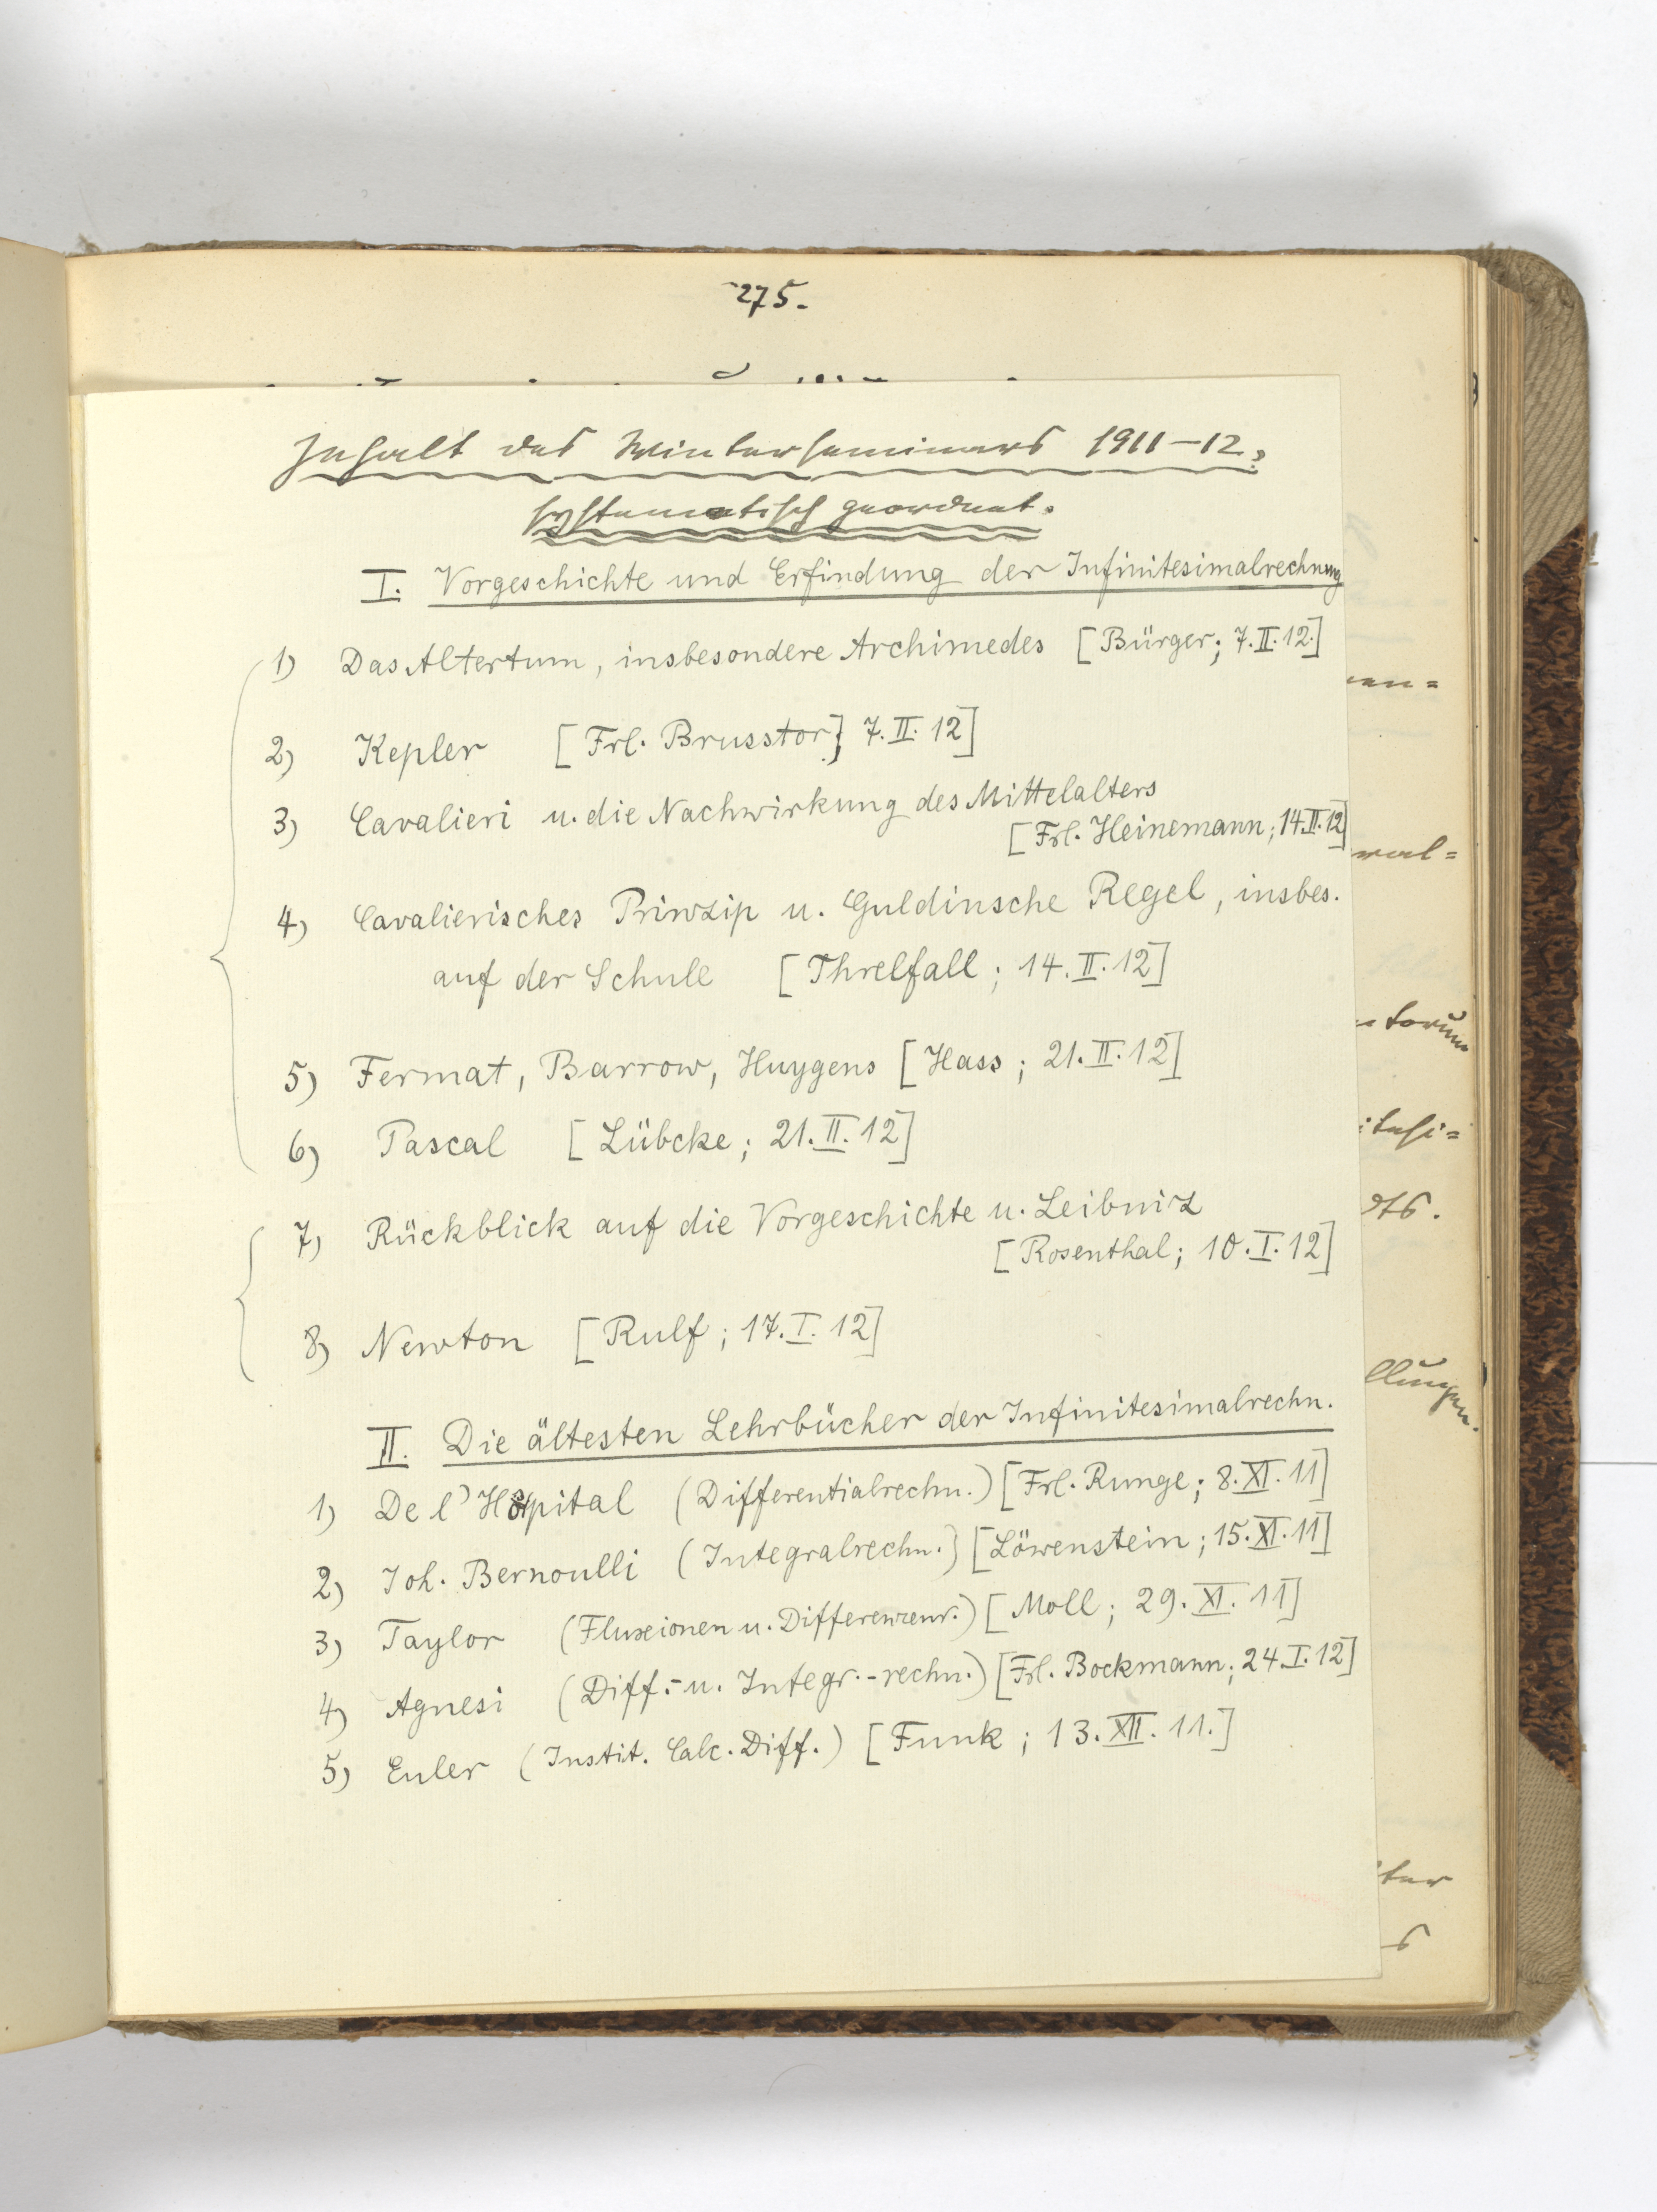 275.
Inhalt des Winterseminars 1911-12.
systematisch geordnet.
I. Vorgeschichte und Erfindung der Infinitesimalrechnung
1) Das Altertum, insbesondere Archimedes [Bürger; 7.II.12.]
2) Kepler [Frl. Brusstor; 7.II.12]
3) Cavalieri u. die Nachwirkung des Mittelalters
[Frl. Heinemann; 14.II.12]
4) Cavalierisches Prinzip u. Guldinsche Regel, insbes.
auf der Schule [Threlfall; 14.II.12]
5) Fermat, Barrow, Huygens [Hass; 21.II.12]
6) Pascal [Lübcke; 21.II.12]
7) Rückblick auf die Vorgeschichte u. Leibniz
[Rosenthal; 10.I.12]
8) Newton [Rulf; 17.I.12]
II. Die ältesten Lehrbücher der Infinitesimalrechn.
1) De l'Hôpital (Differentialrechn.) [Frl. Runge; 8.XI.11]
2) Joh. Bernoulli (Integralrechn.) [Löwenstein; 15.XI.11]
3) Taylor (Fluxionen u. Differenzenr.) [Moll; 29.XI.11]
4) Agnesi (Diff.- u. Integr.-rechn.) [Frl. Bockmann; 24.I.12]
5) Euler (Instit. Calc. Diff.) [Funk; 13.XII.11.]